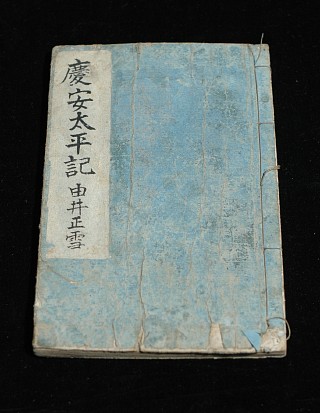 慶安太平記 由井正雪